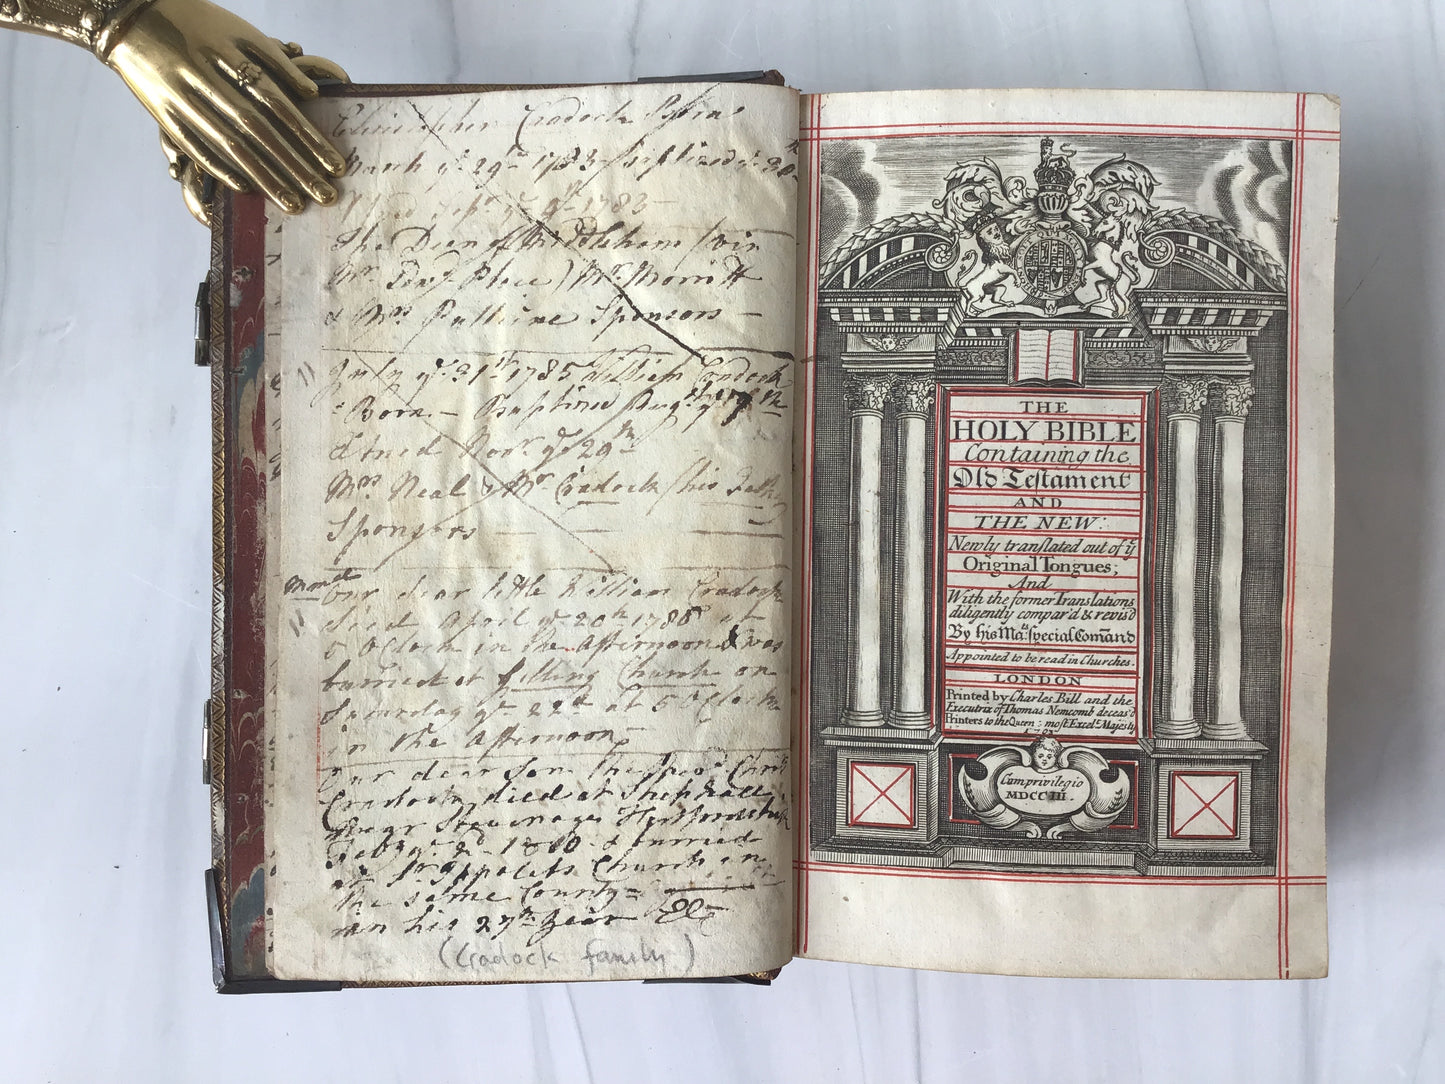 Christopher Cradock Born
March ye 29th 1783 baptized ye 30th
1783
The Dean of Middleham (vin
Mr Place) Mr Morritt
& Mrs Pulleine Sponsors —
July ye 31st 1785 William Cradock
Born — Baptized Augst ye
Nov. ye 29th
Mrs Neal & Mr Cradock his Father
Sponsors —
Our dear little William Cradock
died April ye 20th 1786 at
5 O'Clock in the Afternoon & was
buried at Gilling Church on
Saturday ye 22d at 5 O'Clock
in the Afternoon —
Our dear son the Revd Christr
Cradock died at Shephall
near Stevenage Hertfordshire
Feb ye 2d 1810 & buried
at Church in
the same County —
in his 27th Year
(Cradock family)
THE
HOLY BIBLE
Containing the
Old Testament
AND
THE NEW:
Newly translated out of ye
Original Tongues;
And
With the former Translations
diligently compar'd & revis'd
By his Maties: special Com̄and
Appointed to be read in Churches.
LONDON
Printed by Charles Bill and the
Executrix of Thomas Newcomb deceas'd
Printers to the Queens most Excelt. Majesty
1703
Cum privilegio
MDCCIII.